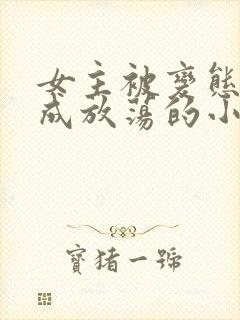 女主被变態
成放荡的小
寶猪一號